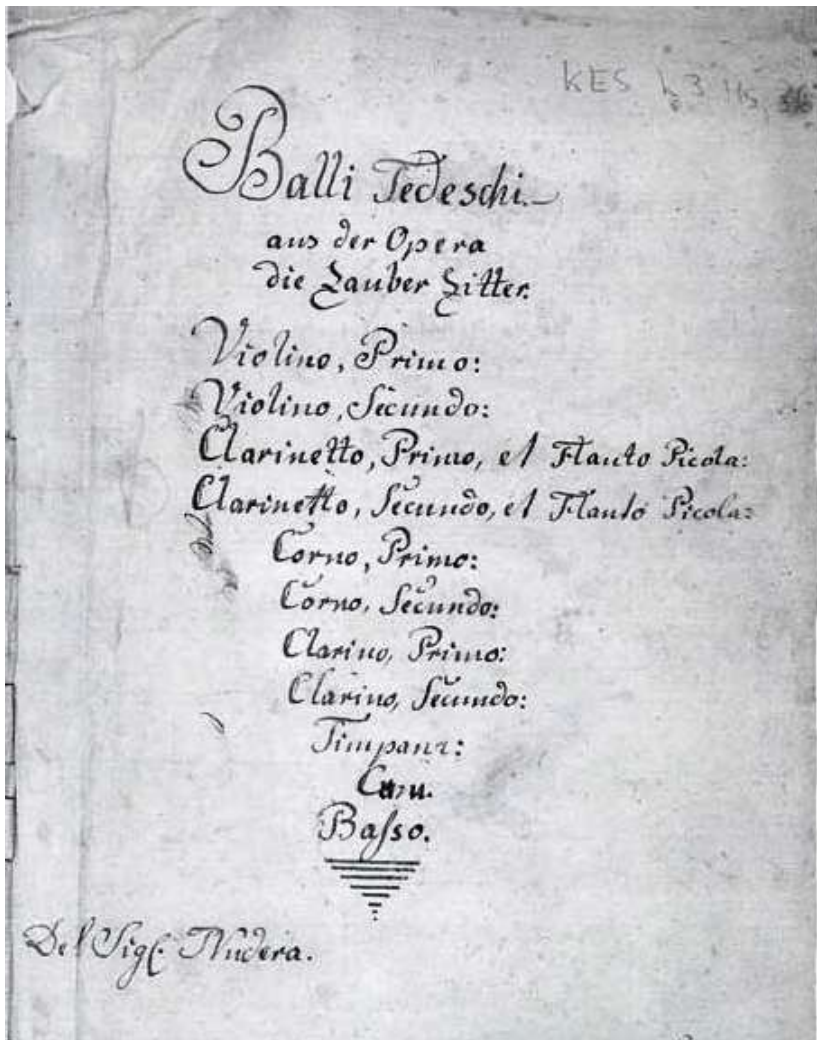 KES
Balli Tedeschi.
aus der Opera
die Zauber Zitter.
Violino, Primo:
Violino, Secundo:
Clarinetto, Primo, et Flauto Picola:
Clarinetto, Secundo, et Flauto Picola:
Corno, Primo:
Corno, Secundo:
Clarino, Primo:
Clarino, Secundo:
Timpani:
Basso.
Del Sigl. Nudera.